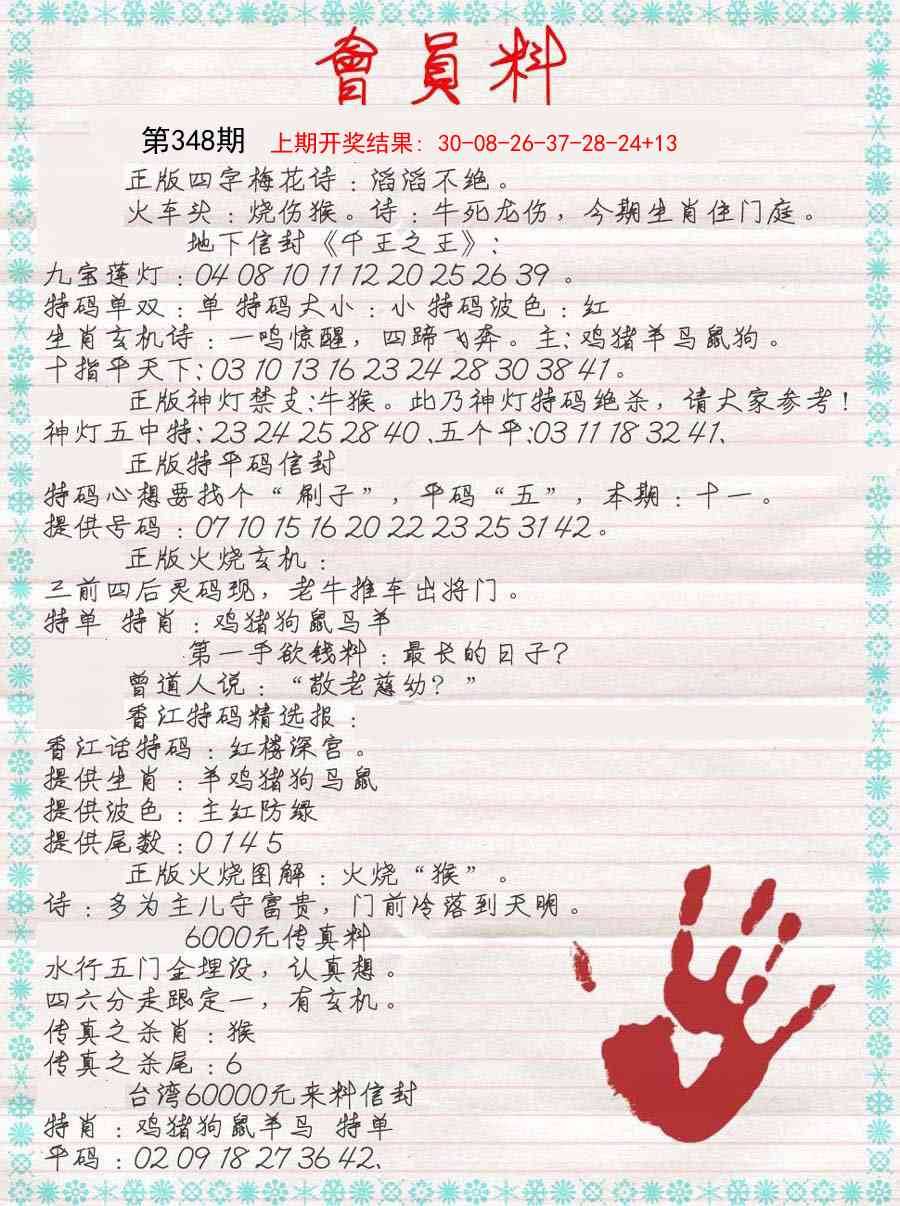 會員料
第348期 上期开奖结果: 30-08-26-37-28-24+13
正版四字梅花诗：滔滔不绝。
火车头：烧伤猴。诗：牛死龙伤，今期生肖住门庭。
地下信封《千王之王》：
九宝莲灯：04 08 10 11 12 20 25 26 39 。
特码单双：单 特码大小：小 特码波色：红
生肖玄机诗：一鸣惊醒，四蹄飞奔。主：鸡猪羊马鼠狗。
十指平天下：03 10 13 16 23 24 28 30 38 41 。
正版神灯禁支:牛猴。此乃神灯特码绝杀，请大家参考！
神灯五中特：23 24 25 28 40 、五个平:03 11 18 32 41、
正版特平码信封
特码心想要找个“刷子”，平码“五”，本期：十一。
提供号码：07 10 15 16 20 22 23 25 31 42 。
正版火烧玄机：
三前四后灵码现，老牛推车出将门。
特单 特肖：鸡猪狗鼠马羊
第一手欲钱料：最长的日子？
曾道人说：“敬老慈幼？”
香江特码精选报：
香江话特码：红楼深宫。
提供生肖：羊鸡猪狗马鼠
提供波色：主红防绿
提供尾数：0 1 4 5
正版火烧图解：火烧“猴”。
诗：多为主儿守富贵，门前冷落到天明。
6000元传真料
水行五门金埋设，认真想。
四六分走跟定一，有玄机。
传真之杀肖：猴
传真之杀尾：6
台湾60000元来料信封
特肖：鸡猪狗鼠羊马 特单
平码：02 09 18 27 36 42、